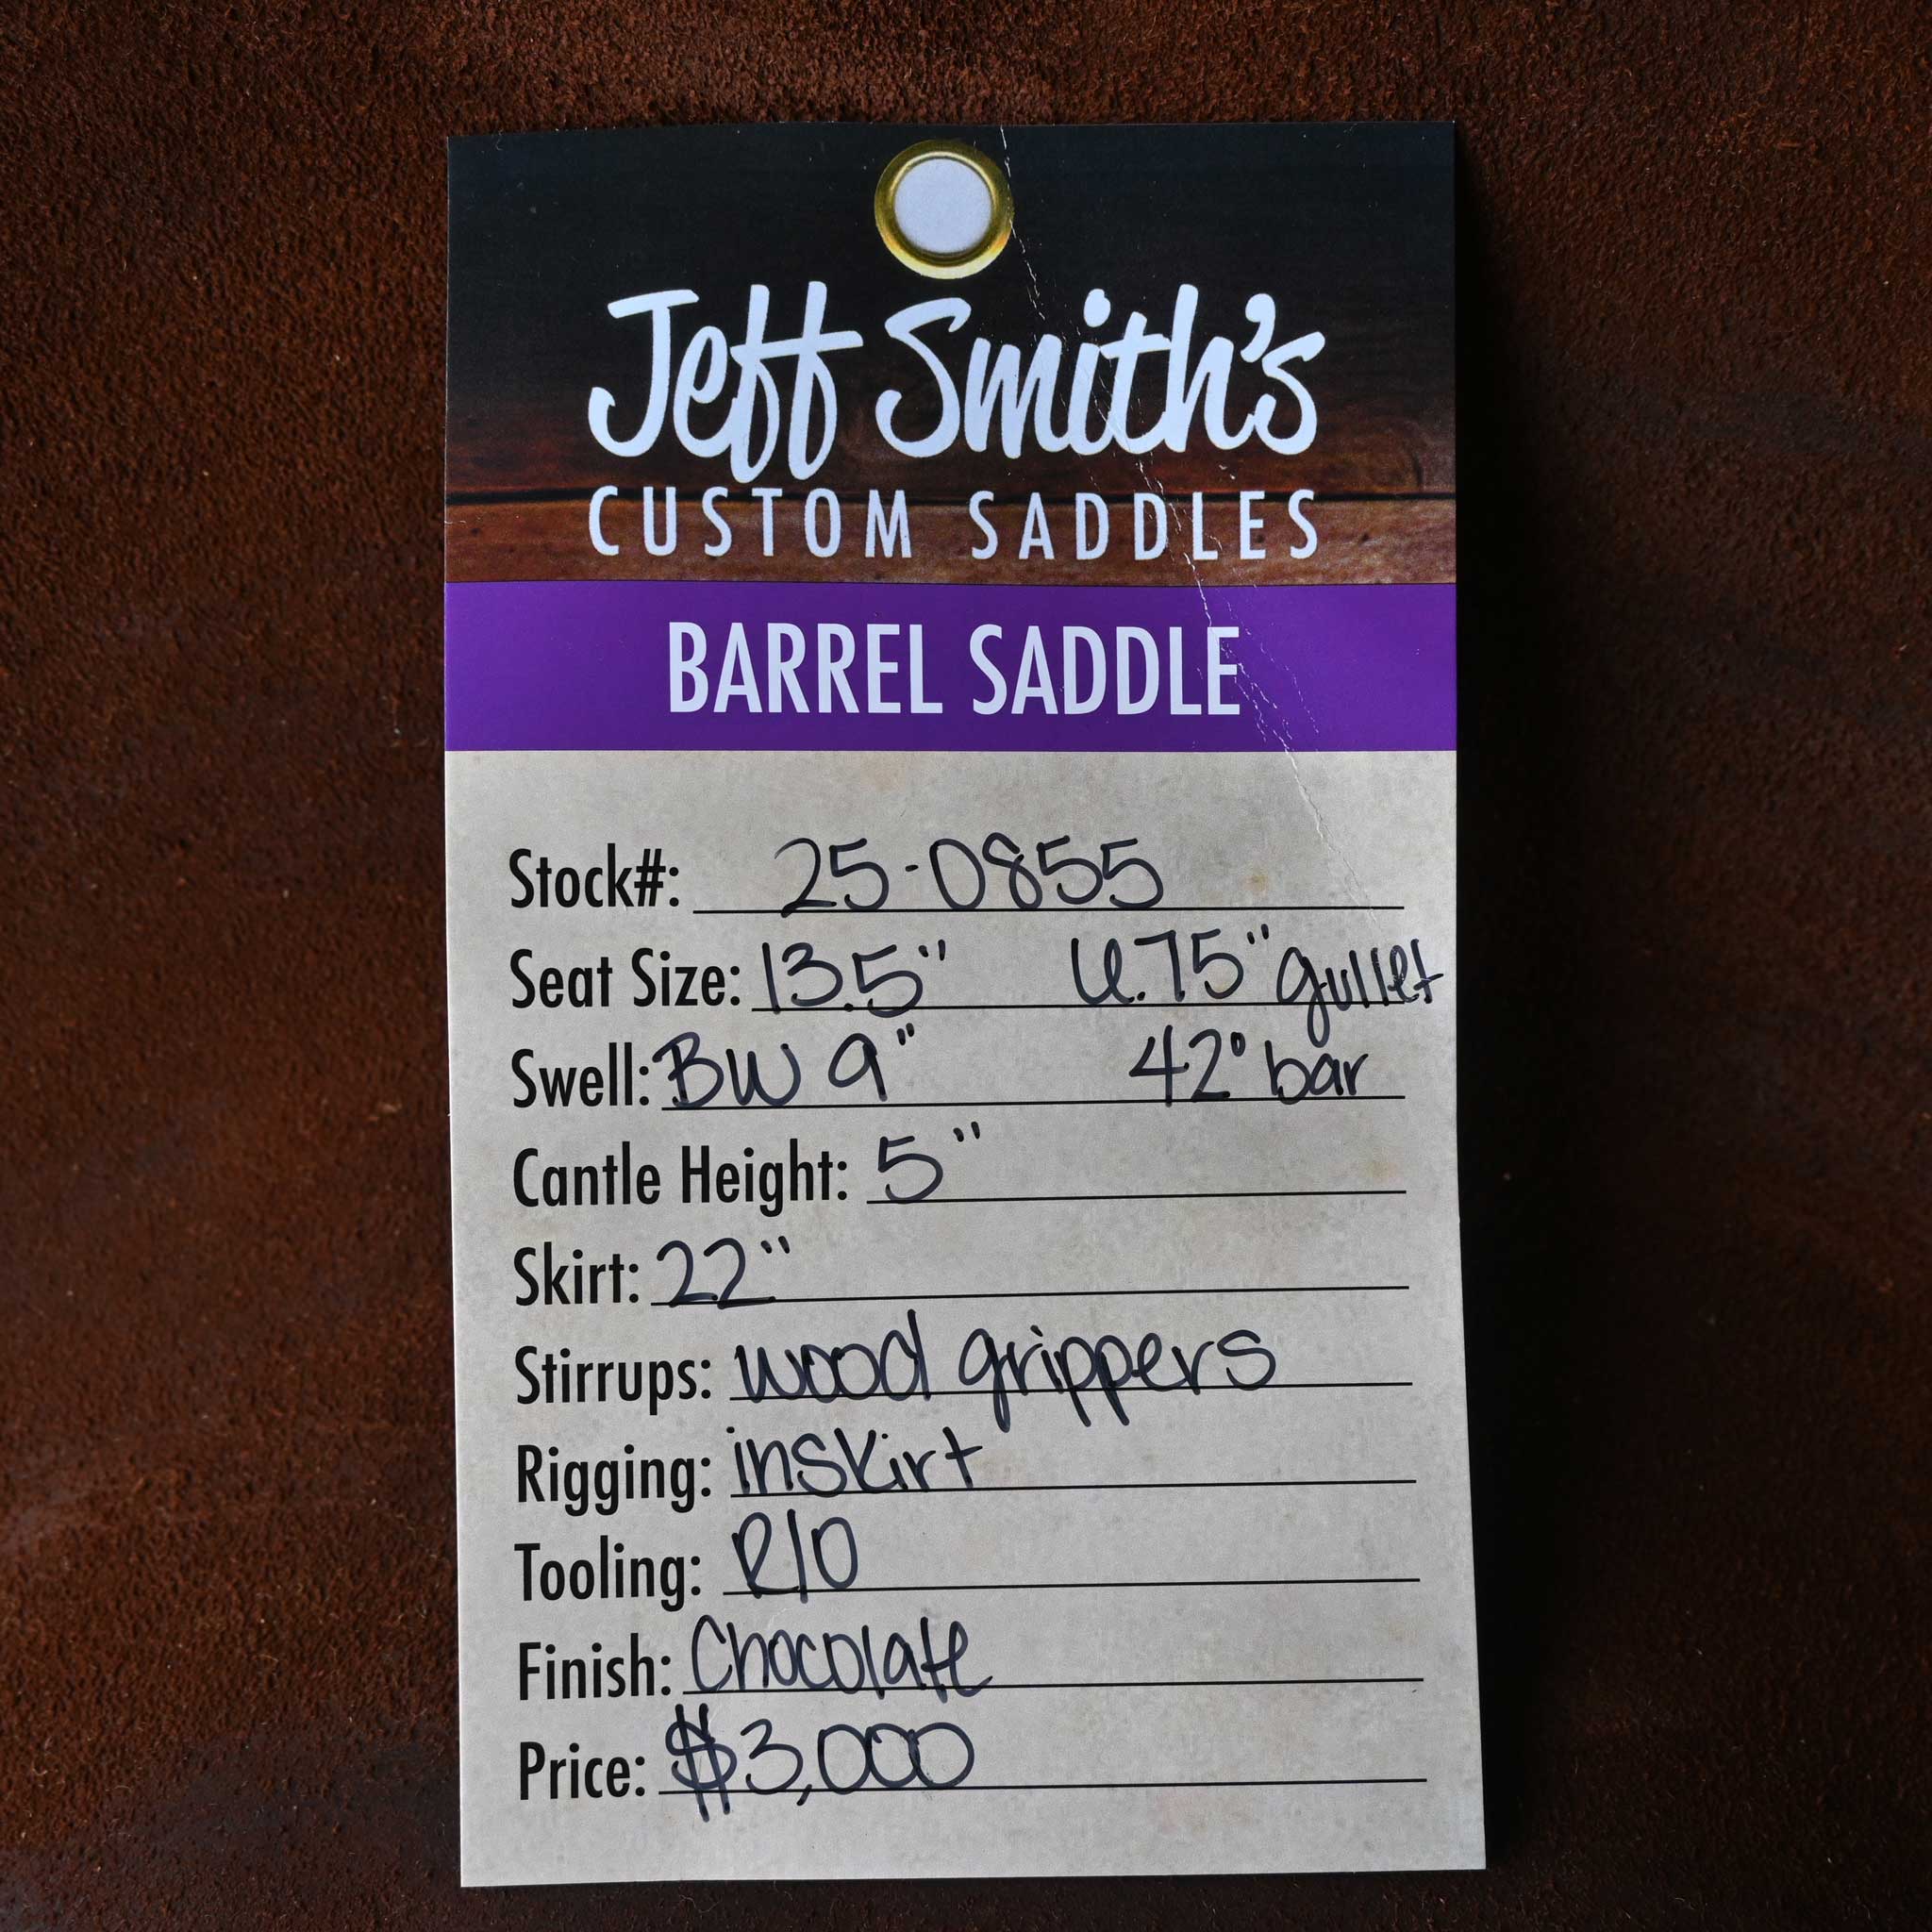 Jeff Smith's
CUSTOM SADDLES
BARREL SADDLE
Stock#: 25-0855
Seat Size: 13.5" 6.75" gullet
Swell: BW 9" 42° bar
Cantle Height: 5"
Skirt: 22"
Stirrups: wood grippers
Rigging: inskirt
Tooling: R/O
Finish: Chocolate
Price: $3,000